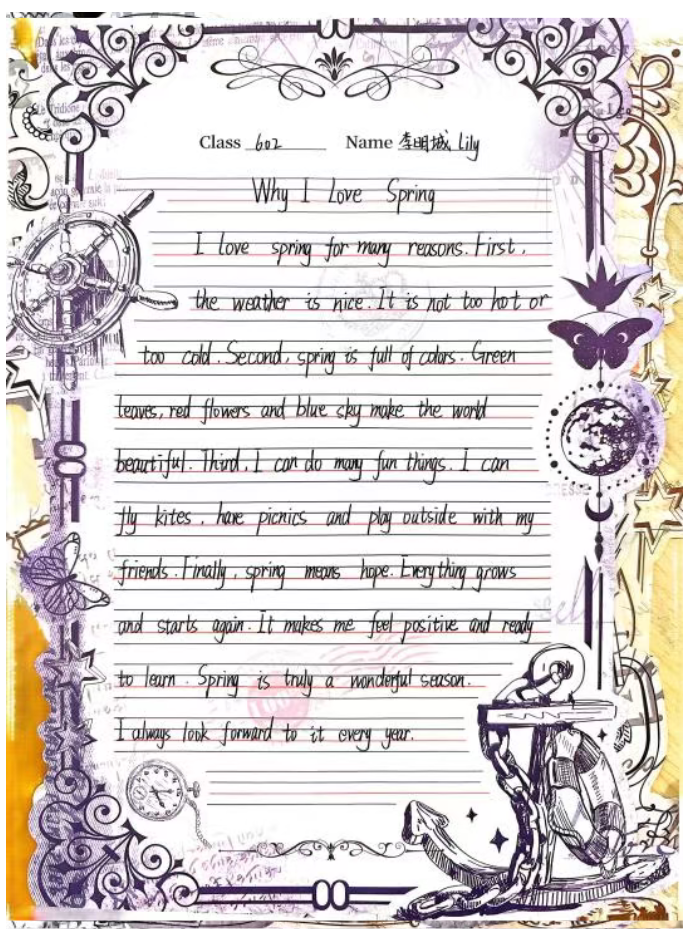 Class 602 Name 李明城 Lily
Why I Love Spring
I love spring for many reasons. First,
the weather is nice. It is not too hot or
too cold. Second, spring is full of colors. Green
leaves, red flowers and blue sky make the world
beautiful. Third, I can do many fun things. I can
fly kites, have picnics and play outside with my
friends. Finally, spring means hope. Everything grows
and starts again. It makes me feel positive and ready
to learn. Spring is truly a wonderful season.
I always look forward to it every year.